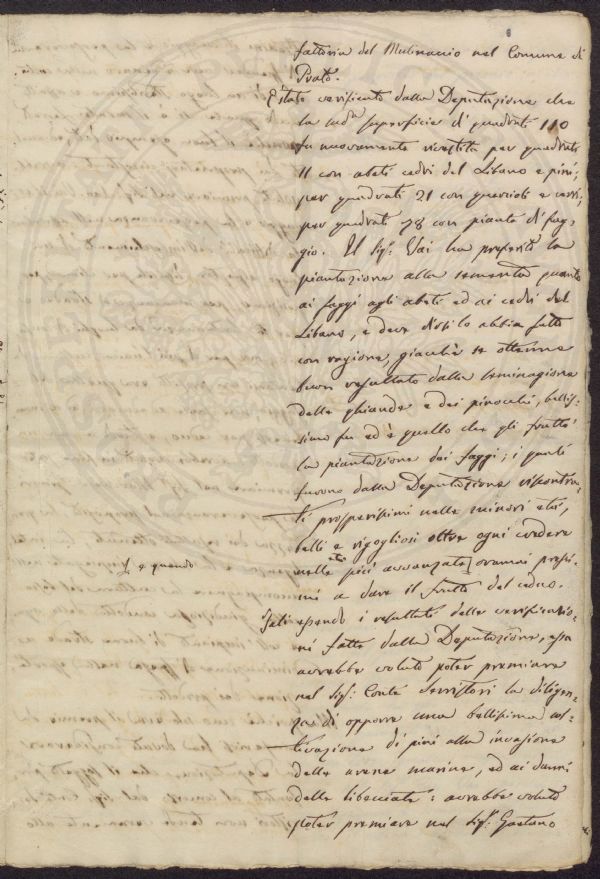 fattoria del Mulinaccio nel Comune di
Prato.
È stato verificato dalla Deputazione che
la sud.ª superficie di quadrati 110
fu nuovamente rivestita per quadrati
11 con abeti cedri del Libano e pini;
per quadrati 21 con quercioli e cerri;
per quadrati 78 con piante di fag-
gio. Il Sig.r Vai ha preferito la
piantazione alla sementa quanto
ai faggi agli abeti ed ai cedri del
Libano, e deve dirsi lo abbia fatto
con ragione, giacchè se ottenne
buon resultato dalla seminagione
delle ghiande e dei pinocchi, bellis-
simo fu ed è quello che gli fruttò
la piantazione dei faggi; i quali
furono dalla Deputazione riscontra-
ti prosperissimi nelle minori età,
belli e rigogliosi oltre ogni credere
nelle età più avanzate ormai prossi-
mi a dare il frutto del ceduo.
e quando
Tali essendo i resultati delle verificazio-
ni fatte dalla Deputazione, essa
avrebbe voluto poter premiare
nel Sig.r Conte Servitori la diligen-
za di opporre una bellissima col-
tivazione di pini alla invasione
delle arene marine, ed ai danni
delle libecciate: avrebbe voluto
poter premiare nel Sig.r Gaetano